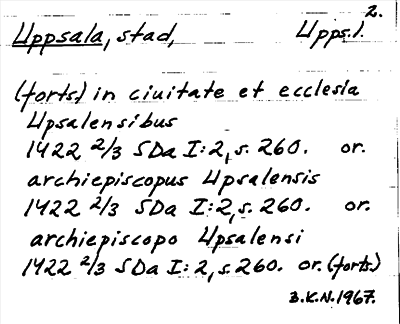 2.
Uppsala, stad, Upps.l.
(forts) in ciuitate et ecclesia
Upsalensibus
1422 2/3 SDa I:2, s. 260. or.
archiepiscopus Upsalensis
1422 2/3 SDa I:2, s. 260. or.
archiepiscopo Upsalensi
1422 2/3 SDa I:2, s. 260. or. (forts.)
B.K.N. 1967.